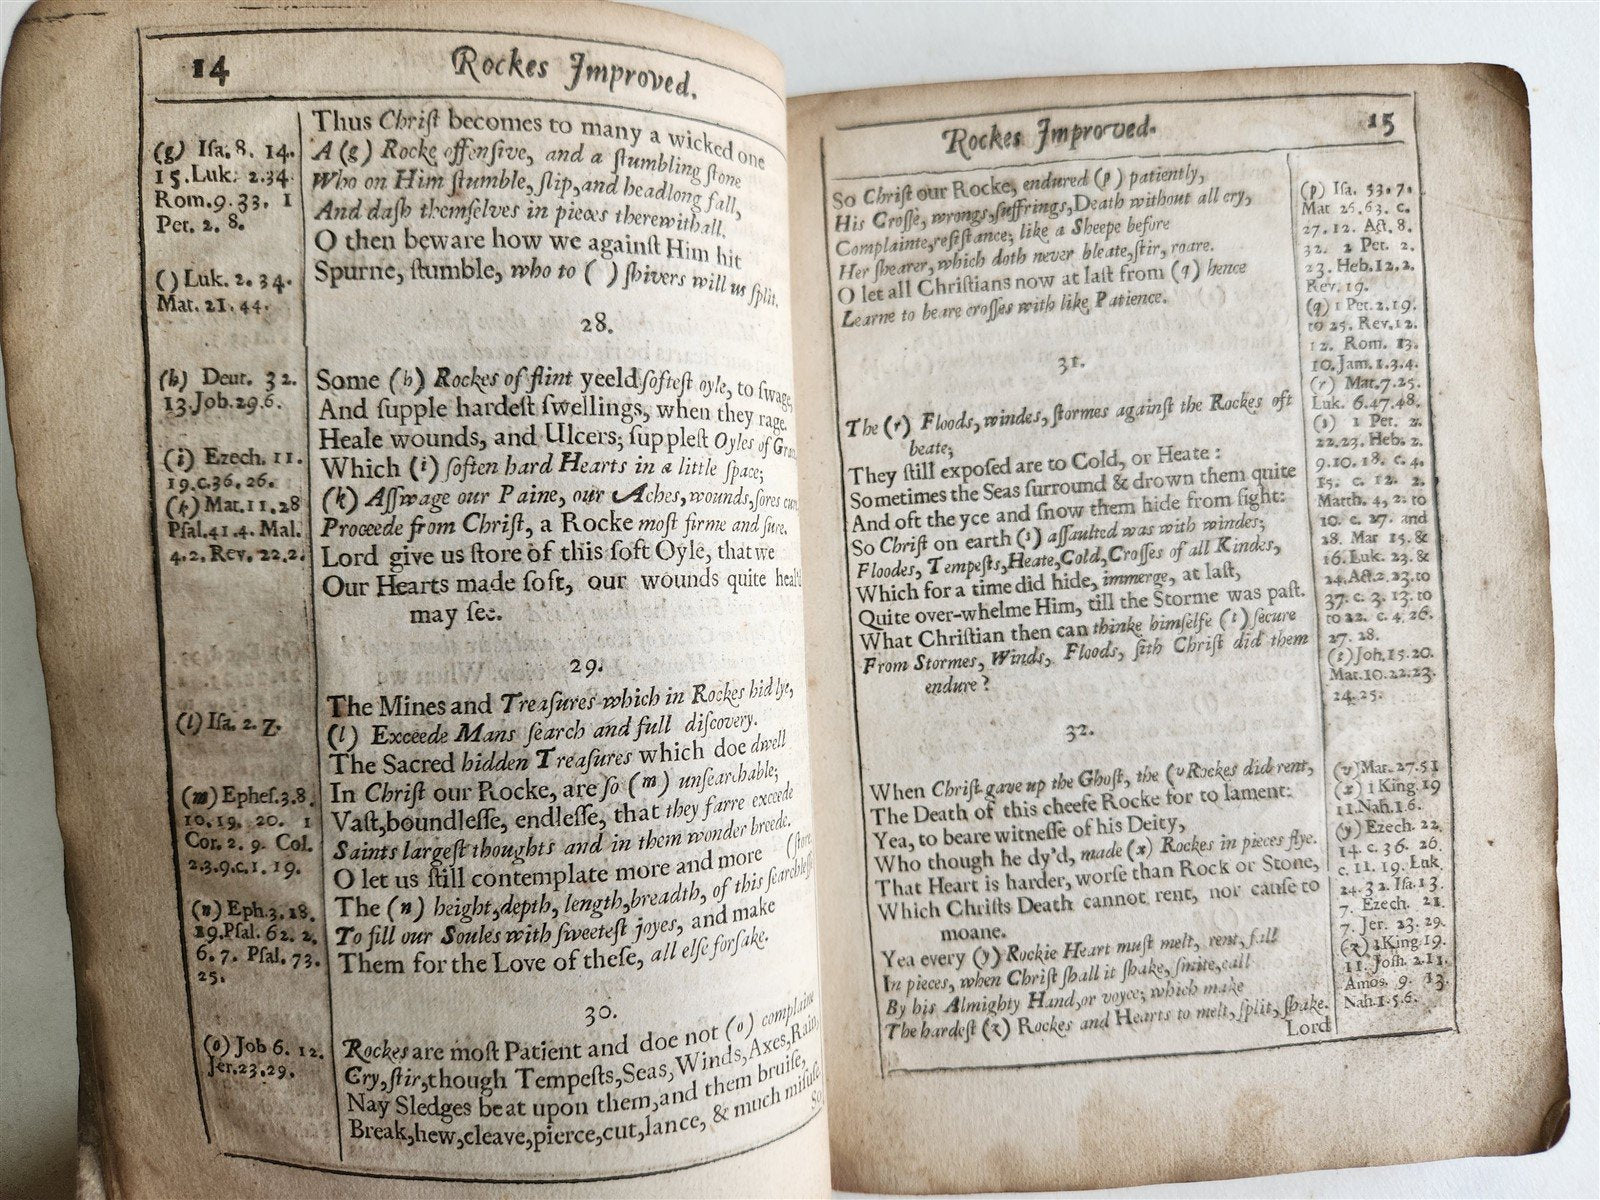 14
Rockes Improved.
(g) Isa. 8. 14.
15. Luk. 2.34
Rom. 9. 33. 1
Pet. 2. 8.
() Luk. 2. 34.
Mat. 21. 44.
(h) Deut. 32.
13. Job. 29. 6.
(i) Ezech. 11.
19. c. 36. 26.
(k) Mat. 11. 28
Psal. 41. 4. Mal.
4. 2. Rev. 22. 2.
(l) Isa. 2. 7.
(m) Ephes. 3. 8.
10. 19. 20. 1
Cor. 2. 9. Col.
2. 3. 9. c. 1. 19.
(n) Eph. 3. 18.
19. Psal. 62. 2.
6. 7. Psal. 73.
25.
(o) Job 6. 12.
Jer. 23. 29.
Thus Chriſt becomes to many a wicked one
A (g) Rocke offenſive, and a ſtumbling ſtone
Who on Him ſtumble, ſlip, and headlong fall,
And daſh themſelves in pieces therewithall.
O then beware how we againſt Him hit
Spurne, ſtumble, who to ( ) ſhivers will us ſplit.
28.
Some (h) Rockes of flint yeeld ſofteſt oyle, to ſwage,
And ſupple hardeſt ſwellings, when they rage.
Heale wounds, and Ulcers; ſuppleſt Oyles of
Which (i) ſoften hard Hearts in a little ſpace;
(k) Aſſwage our Paine, our Aches, wounds, ſores
Proceede from Chriſt, a Rocke moſt firme and ſure.
Lord give us ſtore of this ſoft Oyle, that we
Our Hearts made ſoft, our wounds quite heal'd
may ſee.
29.
The Mines and Treaſures which in Rockes hid lye,
(l) Exceede Mans ſearch and full diſcovery.
The Sacred hidden Treaſures which doe dwell
In Chriſt our Rocke, are ſo (m) unſearchable;
Vaſt, boundleſſe, endleſſe, that they farre exceede
Saints largeſt thoughts and in them wonder breede.
O let us ſtill contemplate more and more (ſtore
The (n) height, depth, length, breadth, of this ſearchleſſe
To fill our Soules with ſweeteſt joyes, and make
Them for the Love of theſe, all elſe forſake.
30.
Rockes are moſt Patient and doe not (o) complaine
Cry, ſtir, though Tempeſts, Seas, Winds, Axes, Rain,
Nay Sledges beat upon them, and them bruiſe,
Break, hew, cleave, pierce, cut, lance, & much miſuſe
So
Rockes Improved.
15
So Chriſt our Rocke, endured (p) patiently,
His Croſſe, wrongs, ſuffrings, Death without all cry,
Complainte, reſiſtance; like a Sheepe before
Her ſhearer, which doth never bleate, ſtir, roare.
O let all Chriſtians now at laſt from (q) hence
Learne to beare croſſes with like Patience.
31.
The (r) Floods, windes, ſtormes againſt the Rockes oft
beate;
They ſtill expoſed are to Cold, or Heate:
Sometimes the Seas ſurround & drown them quite
And oft the yce and ſnow them hide from ſight:
So Chriſt on earth (s) aſſaulted was with windes;
Floodes, Tempeſts, Heate, Cold, Croſſes of all Kindes,
Which for a time did hide, immerge, at laſt,
Quite over-whelme Him, till the Storme was paſt.
What Chriſtian then can thinke himſelfe (t) ſecure
From Stormes, Winds, Floods, ſith Chriſt did them
endure?
32.
When Chriſt gave up the Ghoſt, the (v Rockes did rent,
The Death of this cheefe Rocke for to lament:
Yea, to beare witneſſe of his Deity,
Who though he dy'd, made (x) Rockes in pieces flye.
That Heart is harder, worſe than Rock or Stone,
Which Chriſts Death cannot rent, nor cauſe to
moane.
Yea every (y) Rockie Heart muſt melt, rent, fall
In pieces, when Chriſt ſhall it ſhake, ſmite, call
By his Almighty Hand, or voyce; which make
The hardeſt (z) Rockes and Hearts to melt, ſplit, ſhake.
Lord
(p) Isa. 53. 7.
Mat 26. 63. c.
27. 12. Act. 8.
32. 1 Pet. 2.
23. Heb. 12. 2.
Rev. 19.
(q) 1 Pet. 2. 19.
to 25. Rev. 12.
12. Rom. 13.
10. Jam. 1. 3. 4.
(r) Mat. 7. 25.
Luk. 6. 47. 48.
(s) 1 Pet. 2.
22. 23. Heb. 2.
9. 10. 18. c. 4.
15. c. 12. 2.
Matth. 4. 2. to
10. c. 27. and
28. Mar 15. &
16. Luk. 23. &
24. Act. 2. 23. to
37. c. 3. 13. to
to 22. c. 4. 26.
27. 28.
(t) Joh. 15. 20.
Mat. 10. 22. 23.
24. 25.
(v) Mat. 27. 51
(x) 1 King. 19
11. Nah. 1. 6.
(y) Ezech. 22.
14. c. 36. 26.
c. 11. 19. Luk
24. 32. Isa. 13.
7. Ezech. 21.
7. Jer. 23. 29.
(z) 1 King. 19.
11. Josh. 2. 11.
Amos. 9. 13.
Nah. 1. 5. 6.